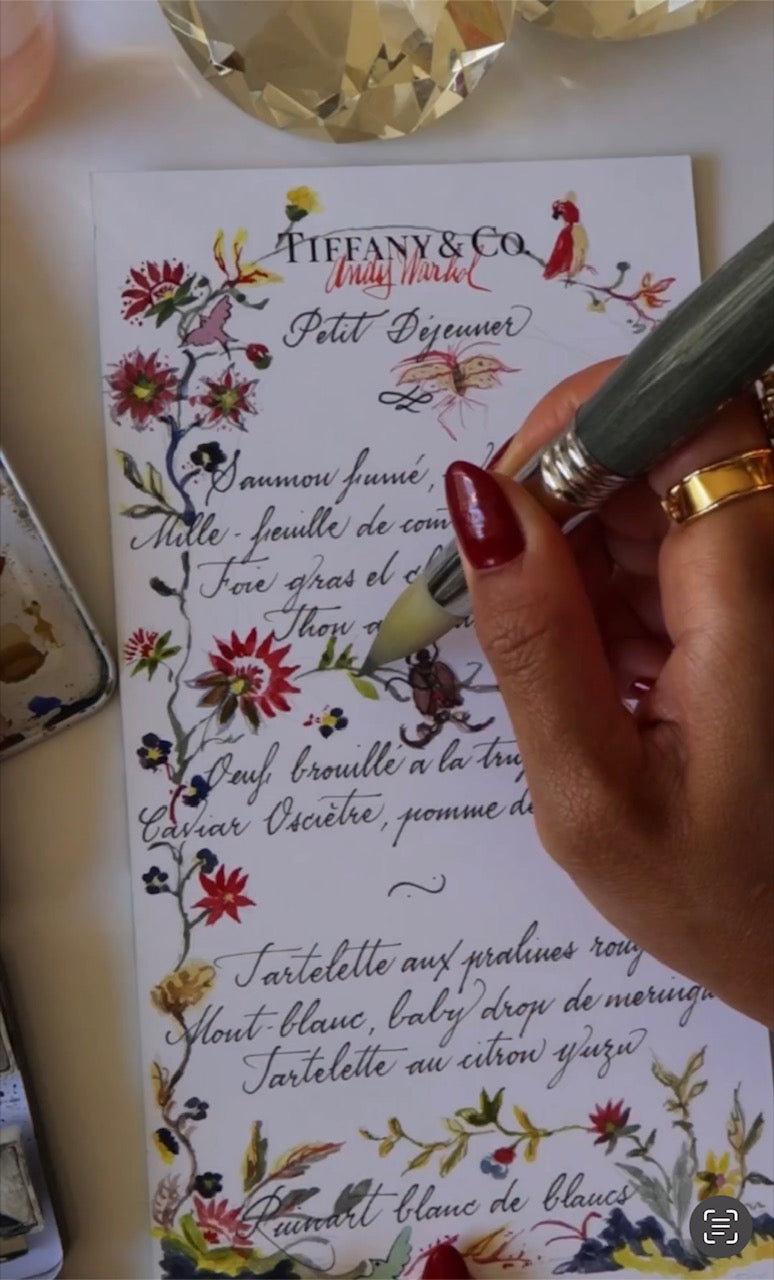 TIFFANY & CO.
Andy Warhol
Petit Déjeuner
Saumon fumé,
Mille-feuille de com
Foie gras et
Thon
Oeuf brouillé a la tru
Caviar Osciètre, pomme de
Tartelette aux pralines roug
Mont-blanc, baby drop de meringu
Tartelette au citron yuzu
Ruinart blanc de blancs